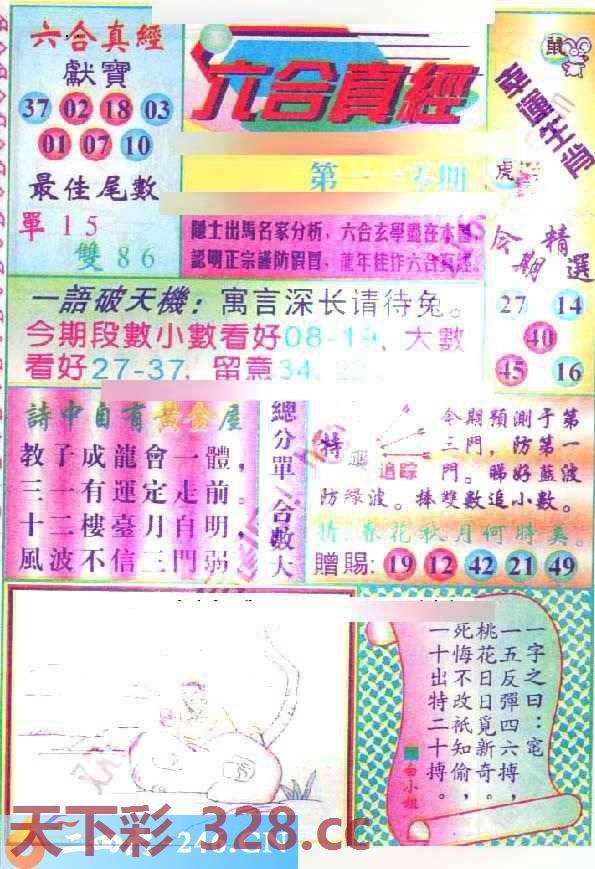 六合真經
獻寶
37 02 18 03
01 07 10
最佳尾數
單 1 5
雙 8 6
六合真經
鼠
幸運生肖
虎
隱士出馬名家分析，六合玄學盡在本書，
認明正宗謹防假冒，龍年佳作六合真經。
今期精選
27 14
40
45 16
一語破天機：寓言深长请待兔。
今期段數小數看好08-19、大數
看好27-37，留意34、
詩中自有黃金屋
教子成龍會一體，
三一有運定走前。
十二樓臺月自明，
風波不信三門弱
總分單 合數大
特
追踪
今期預測于第
三門，防第一
門。睇好藍波
防綠波。捧雙數追小數。
猜：春花秋月何時美。
贈賜：19 12 42 21 49
一字之曰：宽
一五反彈四六搏，
桃花日日覓新奇。
死悔不改祇知偷，
一十出特二十搏。
白小姐
天下彩 328.cc
246.CN